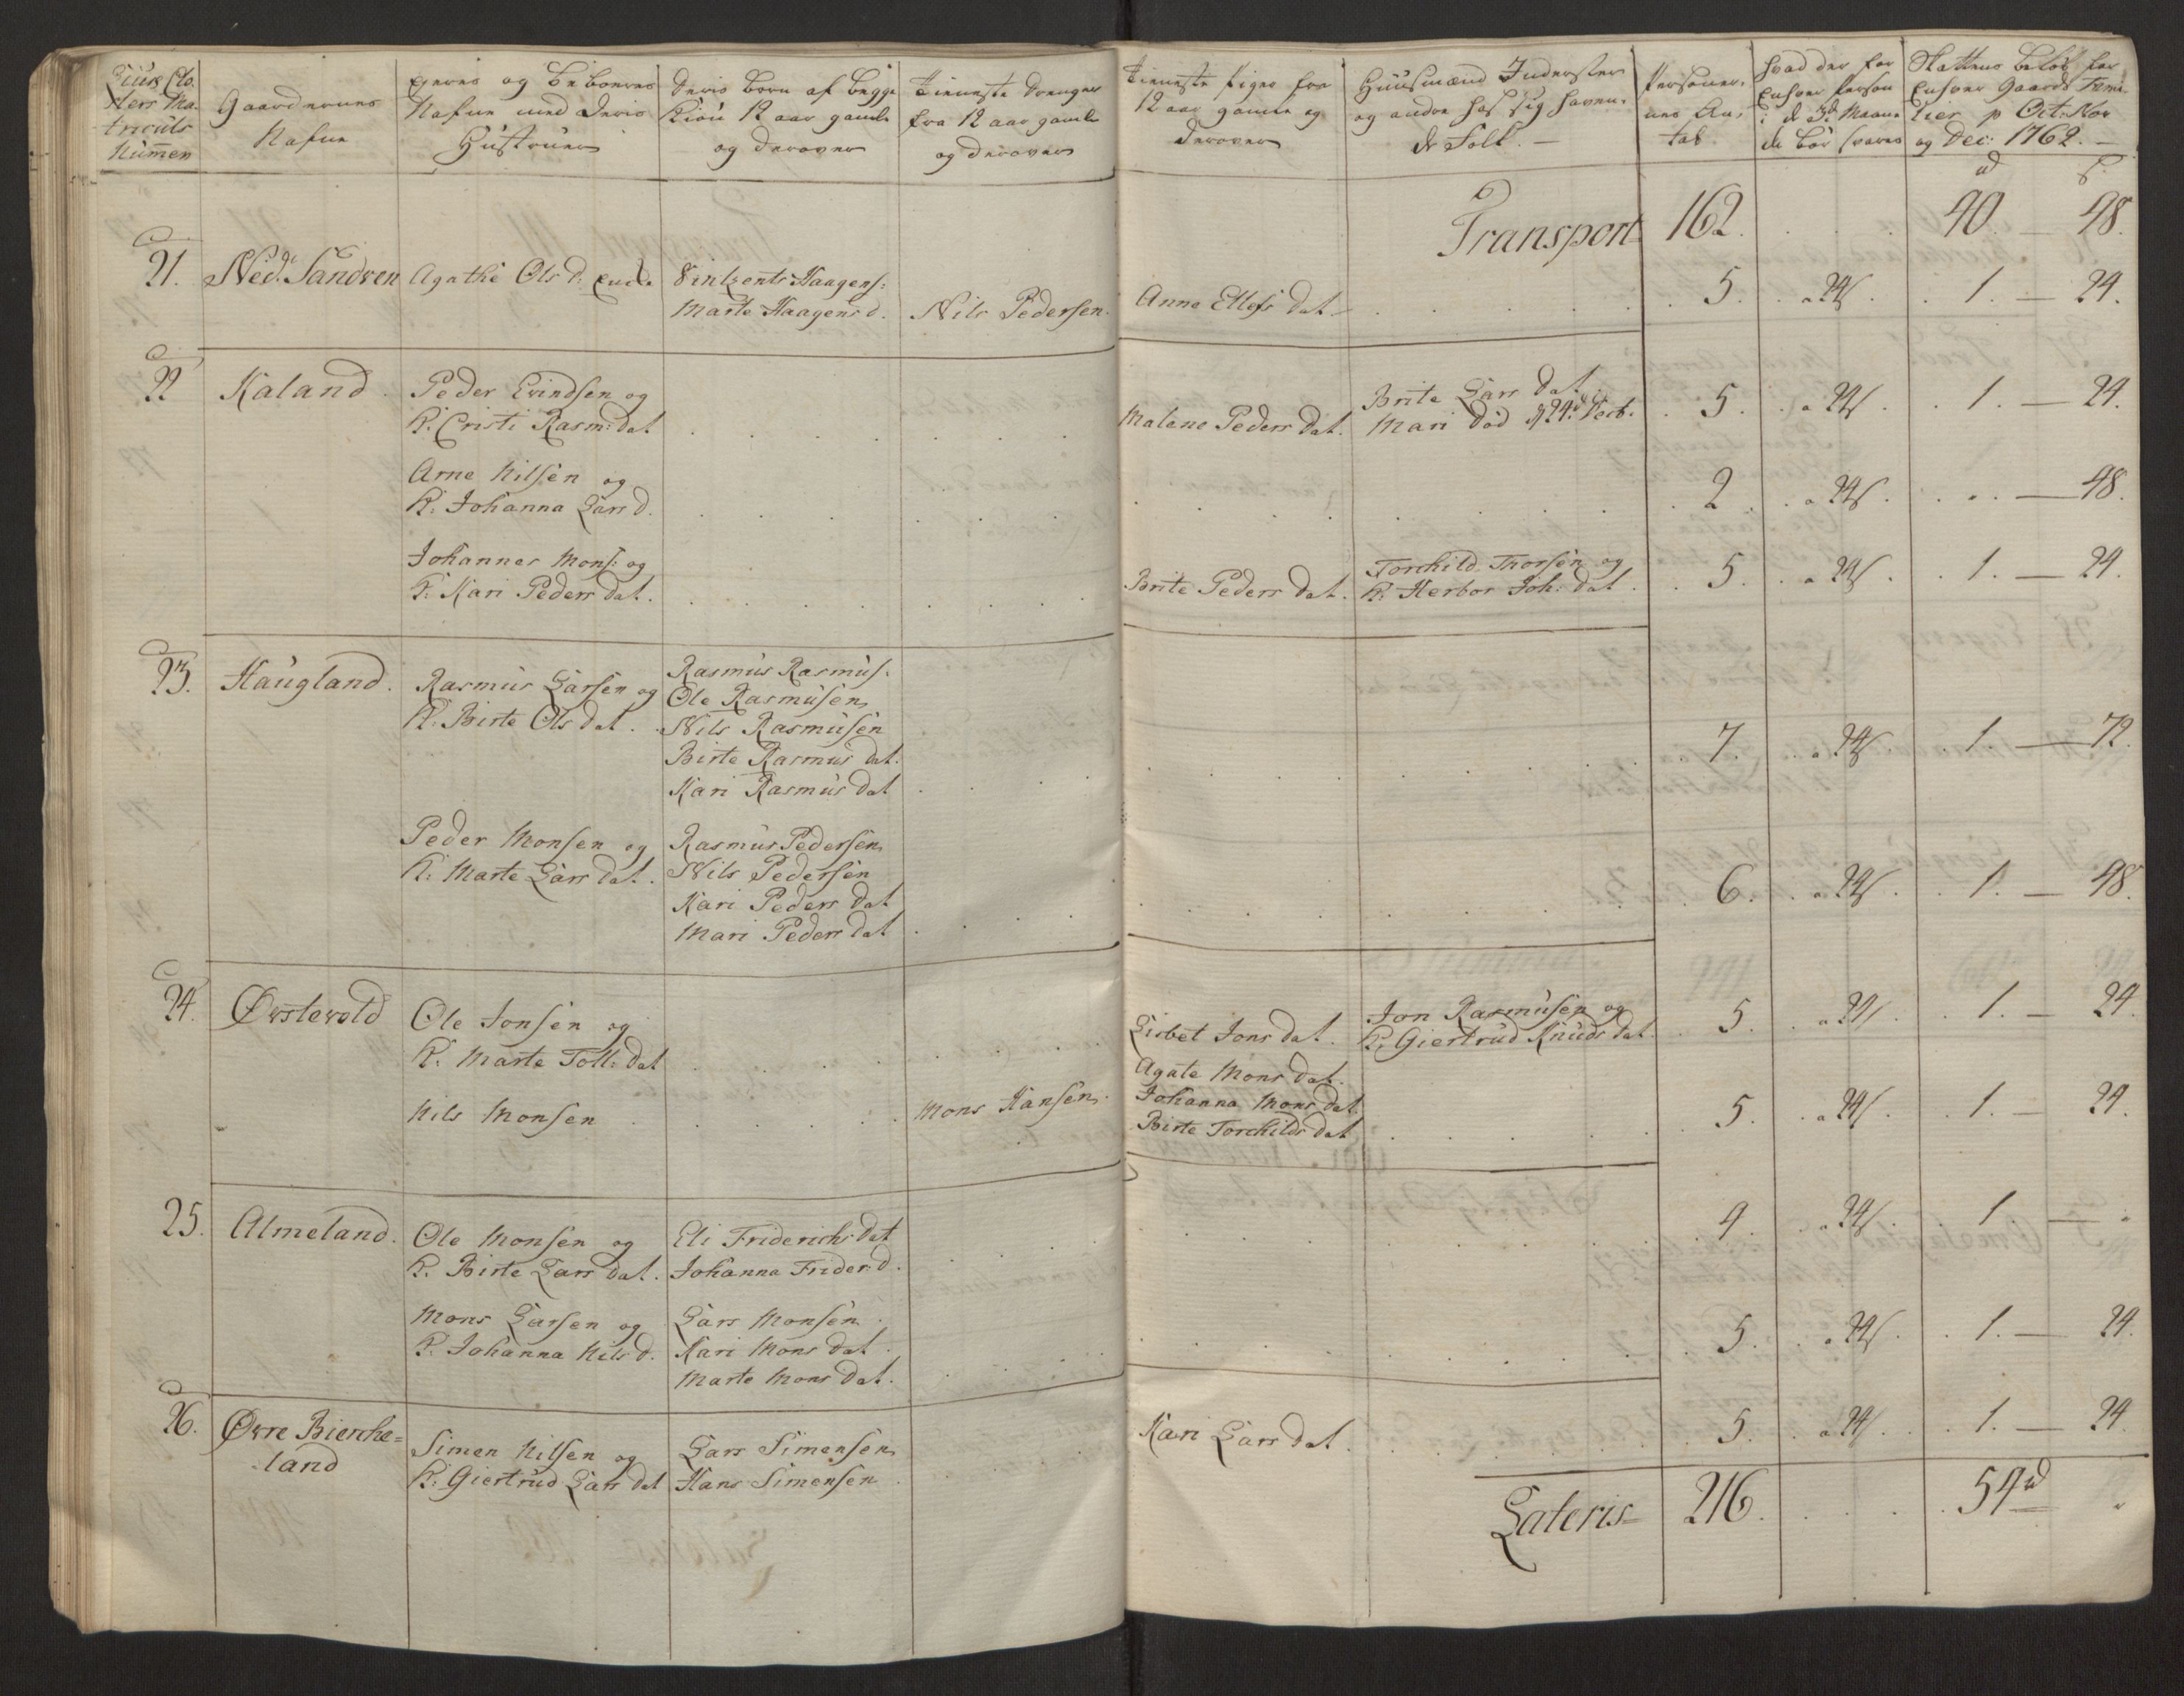 Gaardernes
Nafne
Eyeres og Beboeres
Nafne med Deris
Hüstruer
Deris Børn af begge
Kiøn 12 aar gamle
og derover
Tieneste Drenger
fra 12 aar gamle
og derover
Tieneste Piger fra
12 aar gamle og
derover
Huusmænd Inderster
og andre hos sig haven-
de Folk. —
Personer-
nes An-
tal
hvad der for
Enhver Person
i de 3de Maane
der bør svares
Skattens beløb for
Enhver Gaards Fami-
lier p Oct: Nov
og Dec: 1762. —
Transport 162. 40. — 48.
21. Ned: Sandven Agathe Ols d: Encke Vintzents Haagens:
Marte Haagens d. Nils Pedersen. Anne Ellefs dat. 5. a 24s. 1. — 24.
22 Kaland. Peder Evindsen og
K. Cristi Rasm: dat Malene Peders dat. Brite Lars dat
Mari død 5. a 24s. 1. — 24.
Arne Nilsen og
K: Johanna Lars d. 2. a 24s. — 48.
Johannes Mons: og
K: Kari Peders dat. Brite Peders dat. Torchild Thorsen og
K: Herbor Joh: dat. 5. a 24s. 1. — 24.
23. Haugland. Rasmus Larsen og
K: Birte Ols dat. Rasmus Rasmus.
Ole Rasmusen
Nils Rasmusen
Birte Rasmus dat.
Kari Rasmus dat 7. a 24s. 1. — 72.
Peder Monsen og
K: Marte Lars dat. Rasmus Pedersen
Nils Pedersen
Kari Peders dat
Mari Peders dat 6. a 24s. 1. — 48.
24. Øvstevold Ole Jonsen og
K: Marte Toll: dat Lisbet Jons dat. Jon Rasmusen og
K: Giertrud Knuds dat. 5. a 24s. 1. — 24.
Nils Monsen Mons Hansen. Agate Mons dat.
Johanna Mons dat.
Birte Torchilds dat 5. a 24s. 1. — 24.
25. Almeland. Ole Monsen og
K. Birte Lars dat. Eli Friderichs dat
Johanna Frider: d. 4. a 24s. 1 —
Mons Larsen og
K. Johanna Nils d. Lars Monsen.
Kari Mons dat.
Marte Mons dat. 5. a 24s. 1. — 24.
26. Øvre Bierche=
land Simen Nilsen og
K: Giertrud Lars dat Lars Simensen
Hans Simensen Kari Lars dat. 5. a 24s. 1. — 24
Lateris 216. 54